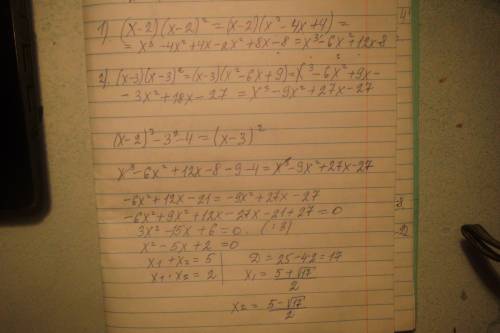 1). (x-2)(x-2)² = (x-2)(x²-4x+4) =
= x³-4x²+4x-2x²+8x-8 = x³-6x²+12x-8
2). (x-3)(x-3)² = (x-3)(x²-6x+9) = x³-6x²+9x-
-3x²+18x-27 = x³-9x²+27x-27
(x-2)³-3²-4 = (x-3)²
x³-6x²+12x-8-9-4 = x³-9x²+27x-27
-6x²+12x-21 = -9x²+27x-27
-6x²+9x²+12x-27x-21+27 = 0
3x²-15x+6 = 0 (:3)
x²-5x+2 = 0
x₁+x₂ = 5 | D = 25-42 = 17
x₁·x₂ = 2 | x₁ = (5+√17)/2
x₂ = (5-√17)/2